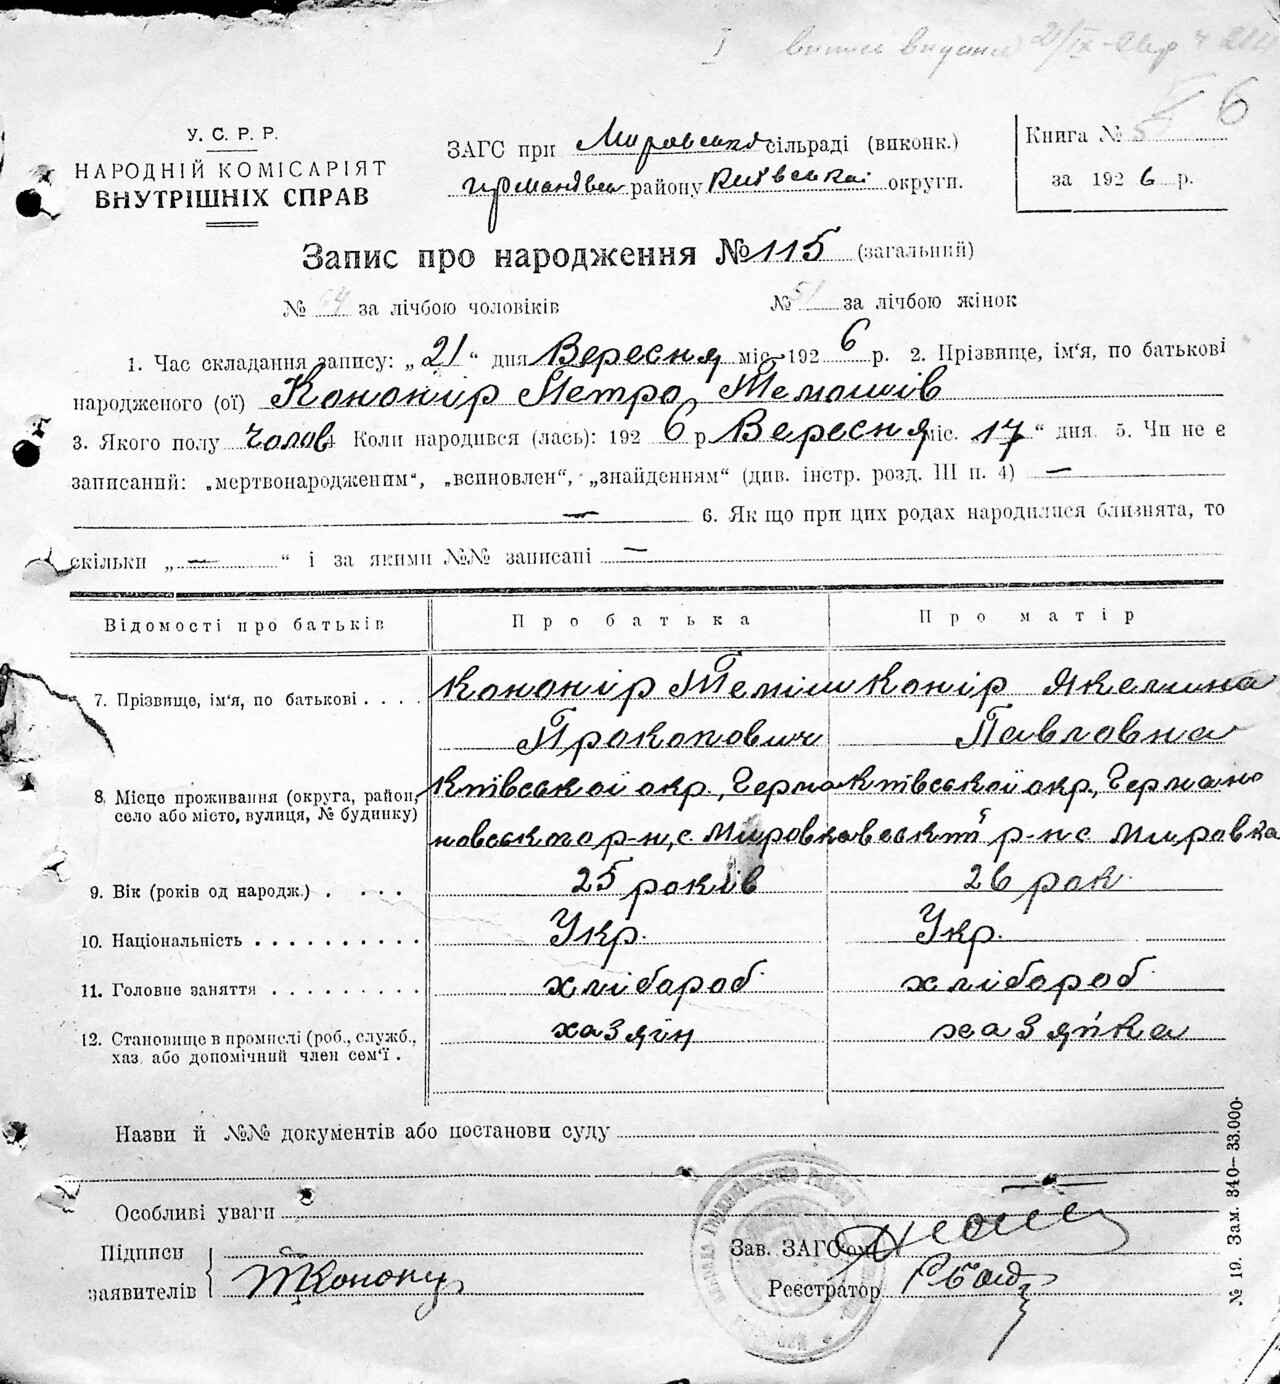 І випись видана 21/IX-26р ч
6
У. С. Р. Р.
НАРОДНІЙ КОМІСАРІЯТ
ВНУТРІШНІХ СПРАВ
ЗАГС при Мировській сільраді (виконк.)
району Київської округи.
Книга № 5
за 1926 р.
Запис про народження № 115 (загальний)
№ 64 за лічбою чоловіків № 51 за лічбою жінок
1. Час складання запису: „21“ дня Вересня міс. 1926 р. 2. Прізвище, ім'я, по батькові
народженого (ої) Кононір Петро Темошів
3. Якого полу чолов 4 Коли народився (лась): 1926 р Вересня міс. 17“ дня. 5. Чи не є
записаний: „мертвонародженим“, „всиновлен“, „знайденням“ (див. інстр. розд. III п. 4) —
— 6. Як що при цих родах народилися близнята, то
скільки „—“ і за якими №№ записані —
Відомості про батьків Про батька Про матір
7. Прізвище, ім'я, по батькові . . . . Кононір Теміш Конір Якелина
Прокопович Павловна
8. Місце проживання (округа, район, село або місто, вулиця, № будинку) Київської окр., Герма Київської окр., Германо
новського р-н, с. Мировка р-н с Мировка
9. Вік (років од народж.) . . . . . 25 років 26 рок.
10. Національність . . . . . . . . . . Укр. Укр.
11. Головне заняття . . . . . . . . . хлібороб. хлібороб.
12. Становище в промислі (роб., служб., хазяїн хазяйка
хаз. або допомічний член сем'ї .
Назви й №№ документів або постанови суду
Особливі уваги
Підписи
заявителів
Зав. ЗАГС'ом
Реєстратор
№ 19. Зам. 340—33.000.